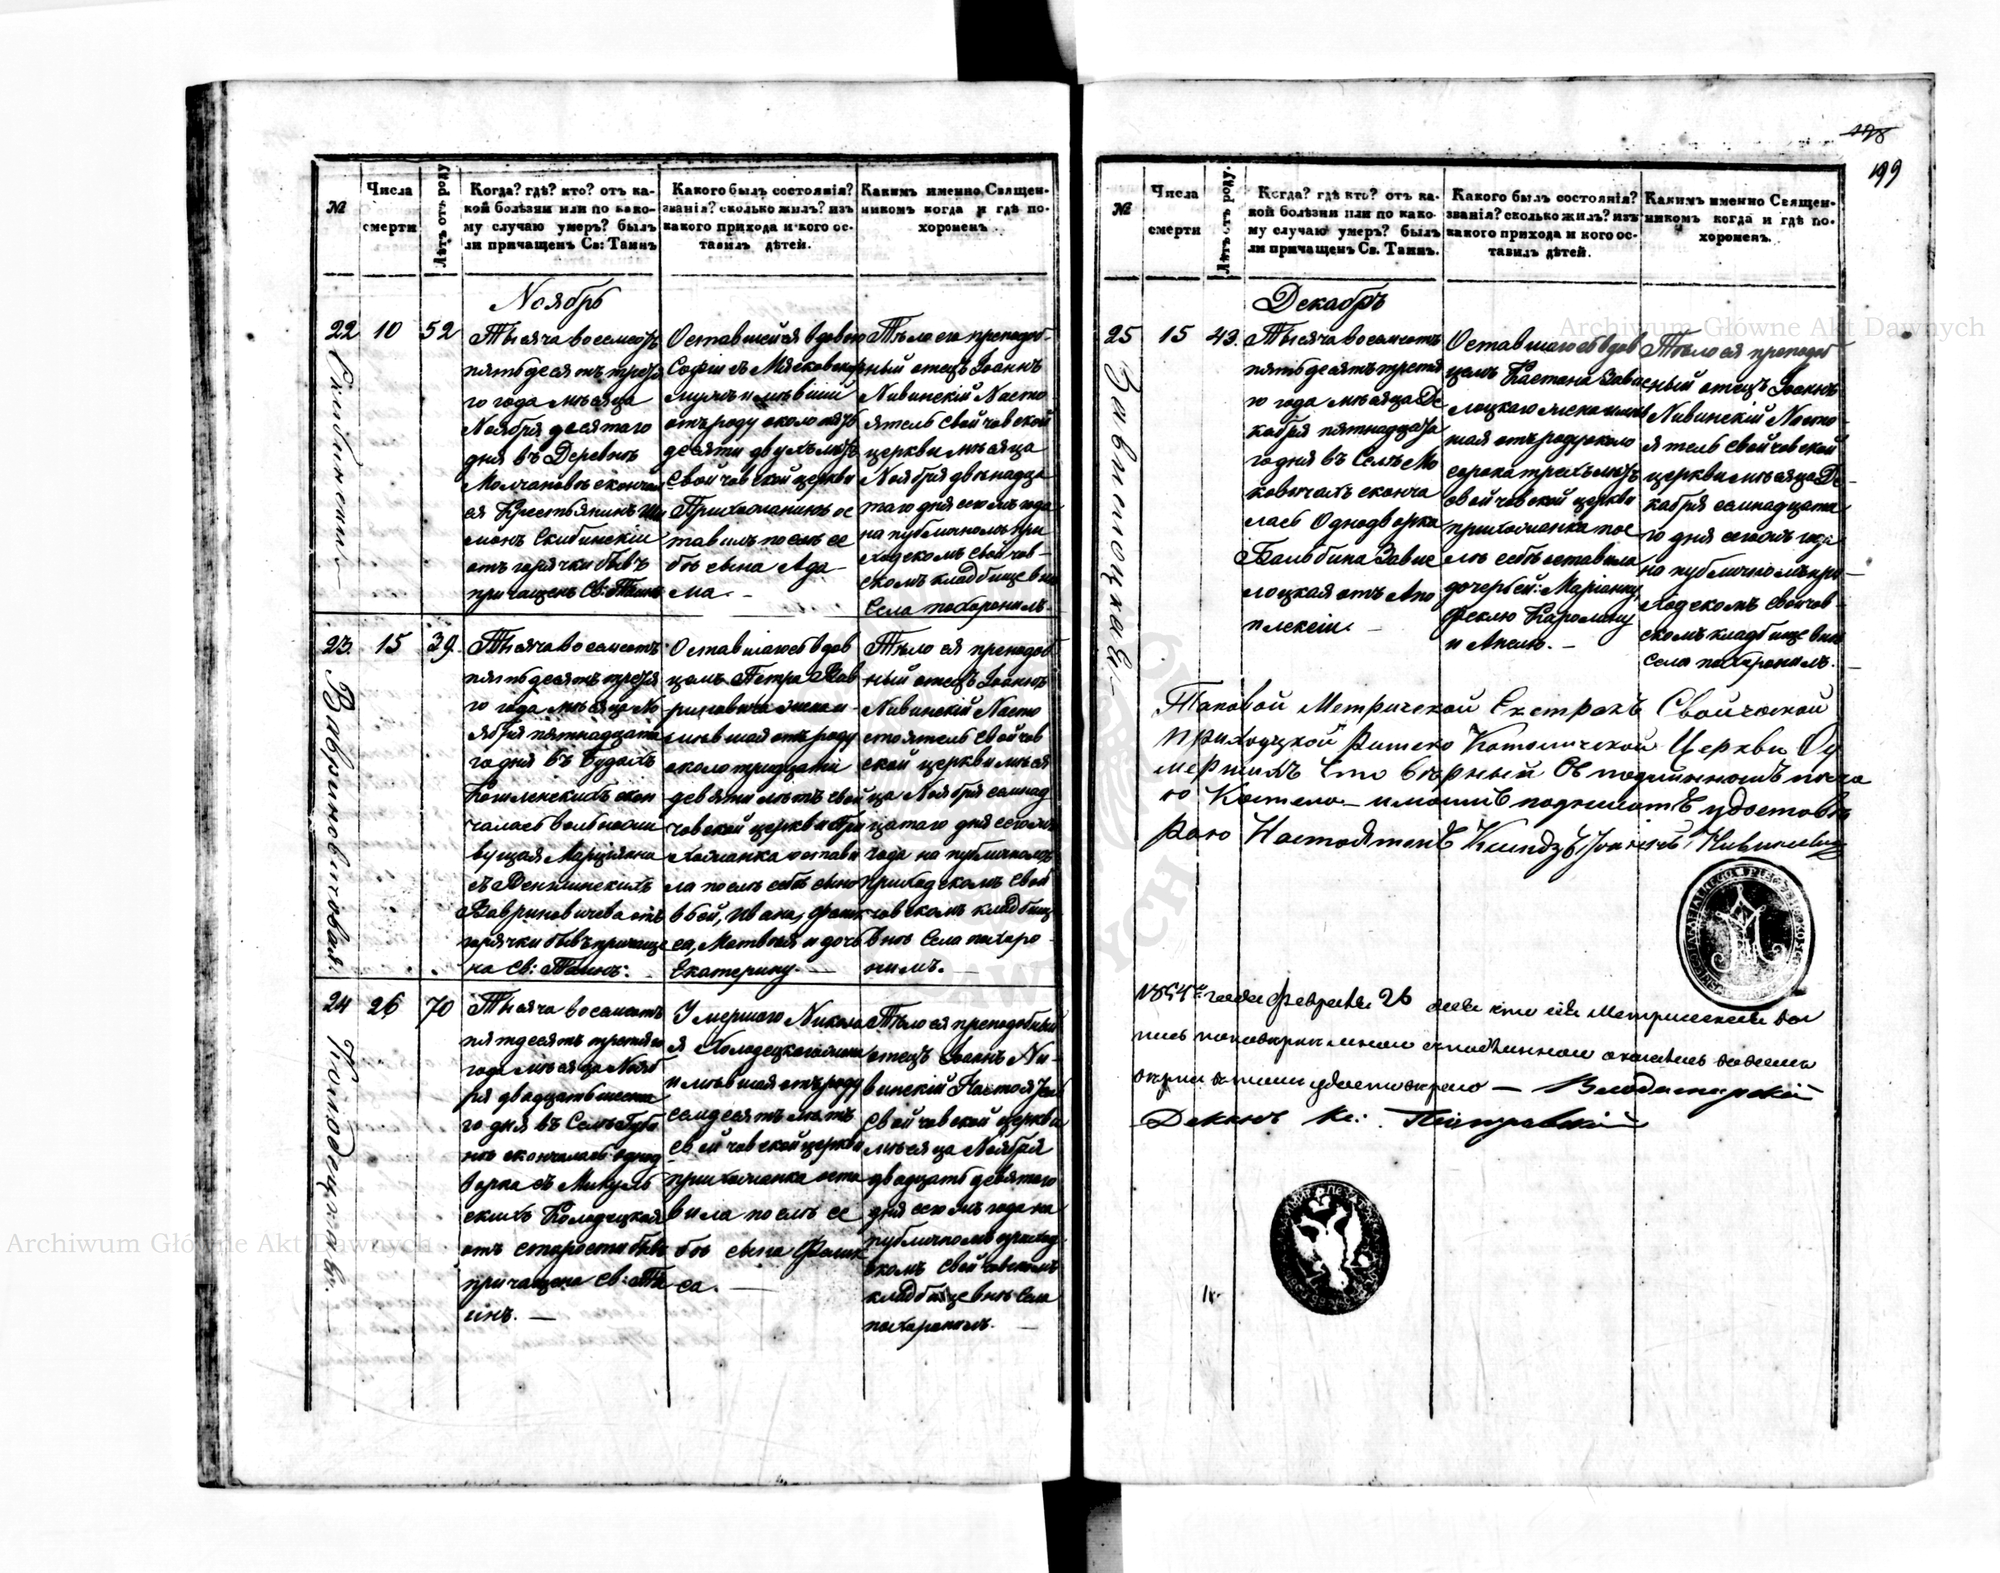 198
199
№
Числа
смерти
Лѣтъ отъ роду.
Когда? гдѣ? кто? отъ ка-
кой болѣзни или по како-
му случаю умеръ? былъ
ли причащенъ Св: Таинъ
Какого былъ состоянія?
званія? сколько жилъ? изъ
какого прихода и кого ос-
тавилъ дѣтей.
Какимъ именно Священ-
никомъ когда и гдѣ по-
хороненъ.
Ноябрь
22
10
52
Скибинскій
Тысяча восемсотъ
пятьдесятъ третя
го года мѣсяца
Ноября десятаго
дня въ Деревнѣ
Молчановкѣ скончал
ся Крестьянинъ Ши
монъ Скибинскій
отъ горячки бывъ
причащенъ Св: Таинъ
Оставшейся вдовою
Софіи съ Мясковскихъ
мужъ имѣвшій
отъ роду около пять
десяти двухъ лѣтъ
Свойчовской церкви
Прихожанинъ ос
тавилъ послѣ се
бѣ сына Ада-
ма. -
Тѣло его преподоб-
ный отецъ Іоаннъ
Нивинскій Насто
ятель Свойчовской
церкви мѣсяца
Ноября двенадца
таго дня сегожъ года
на публичномъ при
ходскомъ Свойчов-
скомъ кладбище внѣ
Села похоронилъ.
23
15
39.
Вавриновичовая.
Тысяча восемсотъ
пятьдесятъ третя
го года мѣсяца Но
ября пятнадцата
го дня въ Будахъ
скон
чалась вольножи
вущая Марцѣяна
съ
Вавриновичева отъ
горячки бывъ причаще
на Св: Таинъ.
Оставшагося вдов
цомъ Петра Вав
риновича жена и-
мѣвшая отъ роду
около тридцати
девяти лѣтъ Свой
човской церкви При
хожанка остави
ла послѣ себѣ сыно
вьей, Ивана, Фелик
са, Матвѣя и дочь
Екатерину. —
Тѣло ея преподоб
ный отецъ Іоаннъ
Нивинскій Насто
ятель Свойчов
ской церкви мѣся
ца Ноября семнад
цатаго дня сегожъ
года на публичномъ
приходскомъ Свой
човскомъ кладбище
внѣ Села похоро-
нилъ.
24
26
70
Колодецкая.
Тысяча восемсотъ
пятдесятъ третяго
года мѣсяца Нояб
ря двадцать шеста
го дня въ Селѣ Губи
нѣ скончалась однод
ворка съ Микуль
скихъ Колодецкая
отъ старости бывъ
причащена Св: Та
инъ. —
Умершаго Никола
я Колодецкаго жена
имѣвшая отъ роду
семдесятъ лѣтъ
Свойчовской церкви
прихожанка оста
вила послѣ се
бѣ сына Фелик
са. —
Тѣло ея преподобный
отецъ Іоаннъ Ни-
винскій Настоятель
Свойчовской церкви
мѣсяца Ноября
двадцать девятаго
дня сегожъ года на
публичномъ приход
скомъ Свойчовскомъ
кладбище внѣ Села
похоронилъ.
№
Числа
смерти
Лѣтъ отъ роду.
Когда? гдѣ кто? отъ ка-
кой болѣзни или по како-
му случаю умеръ? былъ
ли причащенъ Св. Таинъ.
Какого былъ состоянія?
званія? сколько жилъ? изъ
какого прихода и кого ос-
тавилъ дѣтей.
Какимъ именно Священ-
никомъ когда и гдѣ по-
хороненъ.
Декабрь
25
15
43.
Завислоцкая.
Тысяча восемсотъ
пятьдесятъ третя
го года мѣсяца Де
кабря пятнадцата
го дня въ Селѣ Мо
ковичахъ сконча
лась Однодворка
Бальбина Завис
лоцкая отъ Апо
плексіи. -
Оставшагося вдов
цемъ Каетана Завис
лоцкаго жена имѣв
шая отъ роду около
сорока трехъ лѣтъ
Свойчовской церкви
прихожанка пос
лѣ себѣ оставила
дочерьей: Маріанну,
Феклю Каролину
и Анелю. -
Тѣло ея преподоб
ный отецъ Іоаннъ
Нивинскій Насто-
ятель Свойчовской
церкви мѣсяца Де-
кабря семнадцата
го дня сегожъ года
на публичномъ при-
ходскомъ Свойчов-
скомъ кладбище внѣ
села похоронилъ.
Таковой Метрической Екстрактъ Свойчовской
Приходской Римско Католической Церкви О у
мершихъ что вѣрный съ подлиннымъ
Костела удостовѣ
ряю Настоятель Ксіондзъ Іоаннъ Нивинскій
1854го года Февраля 26 дня что сія Метрическая
—
Владимірскій
Деканъ Кс:
Archiwum Główne Akt Dawnych
Archiwum Główne Akt Dawnych